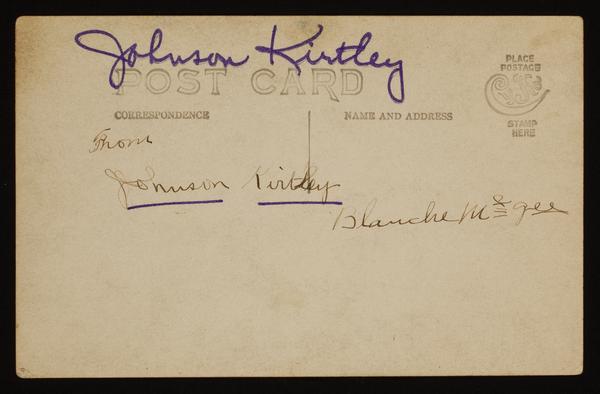 Johnson Kirtley
POST CARD
PLACE
POSTAGE
STAMP
HERE
CORRESPONDENCE
NAME AND ADDRESS
From
Johnson Kirtley
Blanche Mcgee